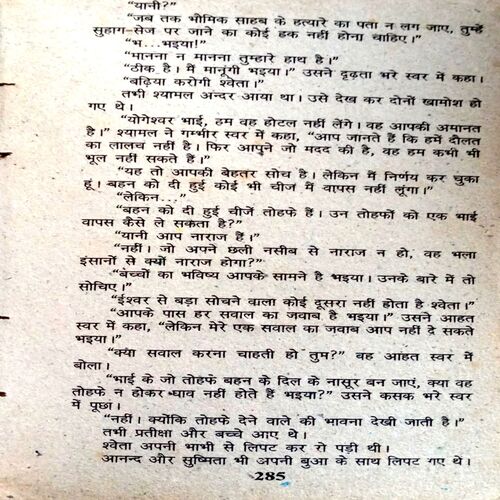 "यानी?"
"जब तक भौमिक साहब के हत्यारे का पता न लग जाए, तुम्हें
सुहाग-सेज पर जाने का कोई हक नहीं होना चाहिए।"
"भ...भइया!"
"मानना न मानना तुम्हारे हाथ है।"
"ठीक है। मैं मानूंगी भइया।" उसने दृढ़ता भरे स्वर में कहा।
"बढ़िया करोगी श्वेता।"
तभी श्यामल अन्दर आया था। उसे देख कर दोनों खामोश हो
गए थे।
"योगेश्वर भाई, हम वह होटल नहीं लेंगे। वह आपकी अमानत
है।" श्यामल ने गम्भीर स्वर में कहा, "आप जानते हैं कि हमें दौलत
का लालच नहीं है। फिर आपुने जो मदद की है, वह हम कभी भी
भूल नहीं सकते हैं।"
"यह तो आपकी बेहतर सोच है। लेकिन मैं निर्णय कर चुका
हूं। बहन को दी हुई कोई भी चीज मैं वापस नहीं लूंगा।"
"लेकिन..."
"बहन को दी हुई चीजें तोहफे हैं। उन तोहफों को एक भाई
वापस कैसे ले सकता है?"
"यानी आप नाराज हैं।"
"नहीं। जो अपने छली नसीब से नाराज न हो, वह भला
इंसानों से क्यों नाराज होगा?"
"बच्चों का भविष्य आपके सामने है भइया। उनके बारे में तो
सोचिए।"
"ईश्वर से बड़ा सोचने वाला कोई दूसरा नहीं होता है श्वेता।"
"आपके पास हर सवाल का जवाब है भइया।" उसने आहत
स्वर में कहा, "लेकिन मेरे एक सवाल का जवाब आप नहीं दे सकते
भइया।"
"क्या सवाल करना चाहती हो तुम?" वह आहत स्वर में
बोला।
"भाई के जो तोहफे बहन के दिल के नासूर बन जाएं, क्या वह
तोहफे न होकर घाव नहीं होते हैं भइया?" उसने कसक भरे स्वर
में पूछा।
"नहीं। क्योंकि तोहफे देने वाले की भावना देखी जाती है।"
तभी प्रतीक्षा और बच्चे आए थे।
श्वेता अपनी भाभी से लिपट कर रो पड़ी थी।
आनन्द और सुष्मिता भी अपनी बुआ के साथ लिपट गए थे।
285